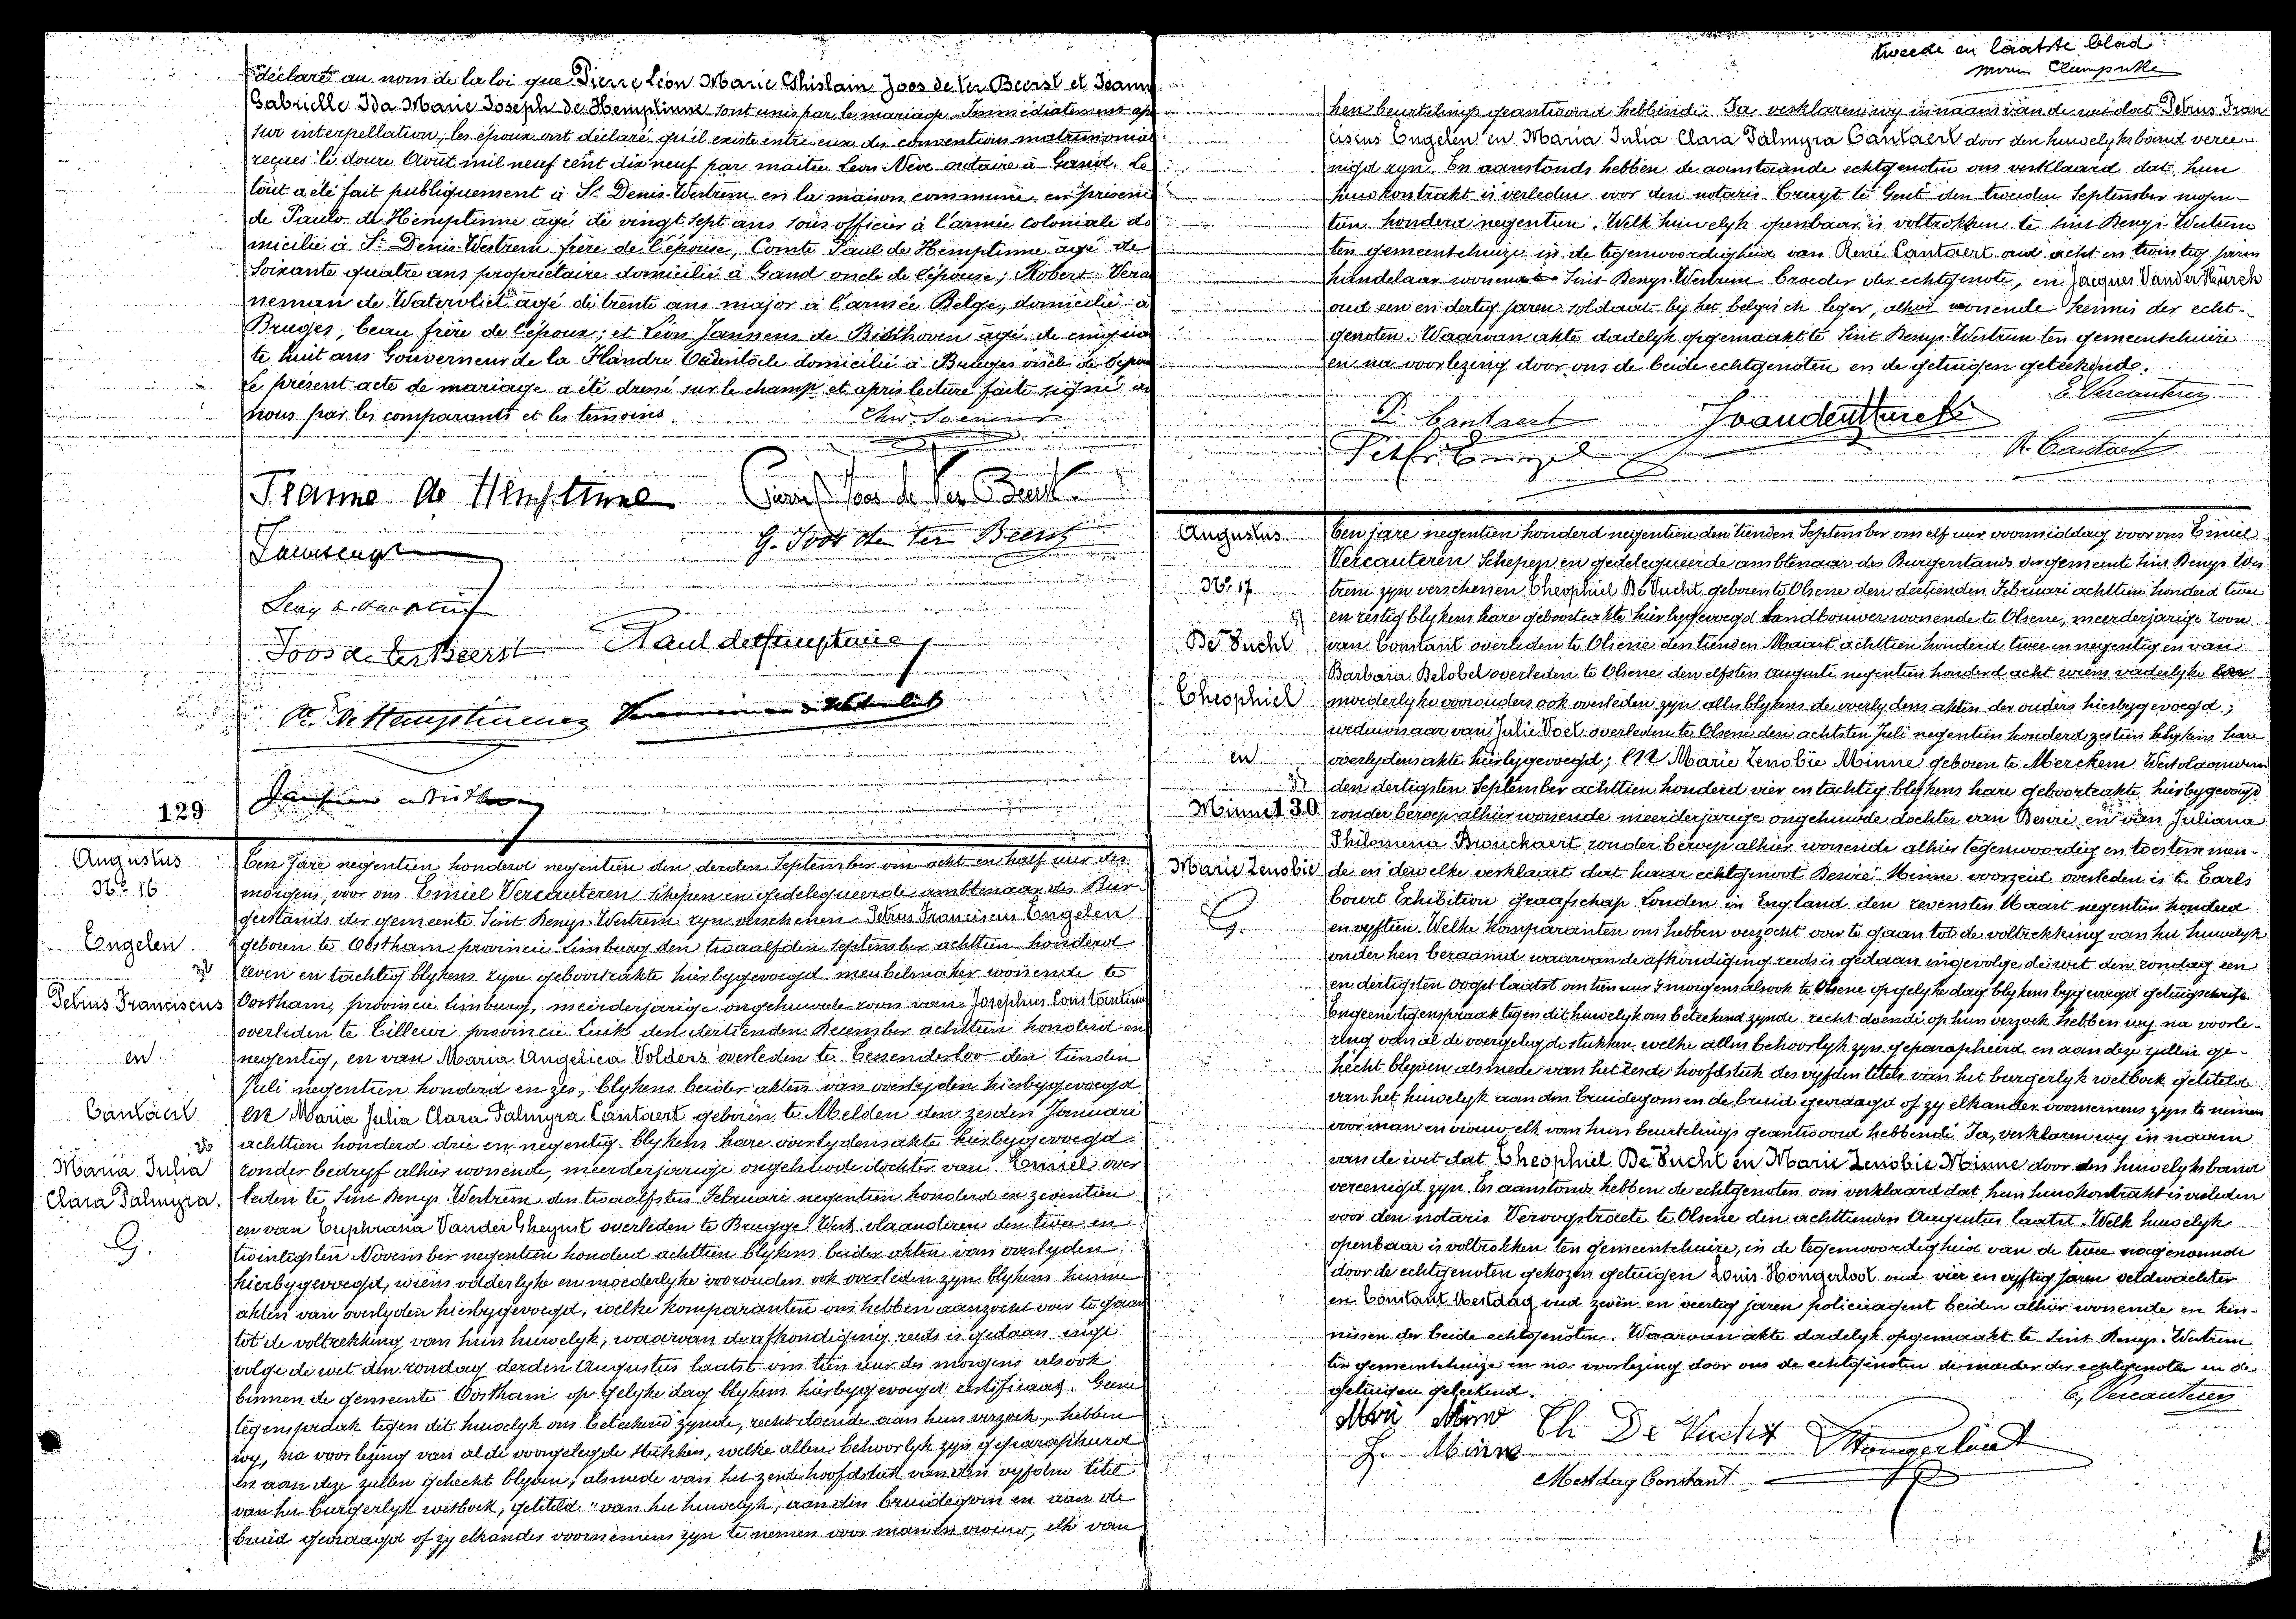 déclaré au nom de la loi que Pierre Léon Marie Ghislain Joos de ter Beerst et Jeanne
Gabrielle Ida Marie Joseph de Hemptinne sont unis par le mariage. Immédiatement ap
sur interpellation, les époux ont déclaré qu'il existe entre eux des conventions matrimonial
reçues le douze Août mil neuf cent dix neuf par maître Léon Nève notaire à Gand. Le
tout a été fait publiquement à St Denis-Westrem en la maison commune en présence
de Paulo de Hemptinne âgé de vingt sept ans sous officier à l'armée coloniale do
micilié à St Denis-Westrem frère de l'épouse, Comte Paul de Hemptinne âgé de
soixante quatre ans propriétaire domicilié à Gand oncle de l'épouse; Robert Vera
neman de Watervliet âgé de trente ans major à l'armée Belge, domicilié à
Bruges, beau frère de l'époux; et Léon Janssens de Bisthoven âgé de cinquan
te huit ans Gouverneur de la Flandre Occidentale domicilié à Bruges oncle de l'épou
Le présent acte de mariage a été dressé sur le champ et après lecture faite signé av
nous par les comparants et les témoins.
Jeanne de Hemptinne
G. Joos de ter Beerst
Joos de ter Beerst Paul de Hemptinne
de Hemptinne
129
Augustus
No 16
Engelen
Petrus Franciscus
en
Cantaert
Maria Julia
Clara Palmyra.
G.
Ten jare negentien honderd negentien den derden September om acht en half uur des
morgens, voor ons Emiel Vercauteren schepen en gedelegueerde ambtenaar des Bur-
gerstands der gemeente Sint Denys-Westrem zyn verschenen Petrus Franciscus Engelen
geboren te Oostham provincie Limburg den twaalfden september achttien honderd
zeven en tachtig blykens zyne geboorteakte hierbygevoegd meubelmaker wonende te
Oostham, provincie Limburg, meerderjarige ongehuwde zoon van Josephus Constantinus
overleden te Tilleur provincie Luik den dertienden December achttien honderd en
negentig, en van Maria Angelica Volders overleden te Tessenderloo den tienden
Juli negentien honderd en zes, blykens beider akten van overlyden hierbygevoegd
en Maria Julia Clara Palmyra Cantaert geboren te Melden den zesden Januari
achttien honderd drie en negentig blykens hare overlydensakte hierbygevoegd
zonder bedryf alhier wonende, meerderjarige ongehuwde dochter van Emiel over
leden te Sint Denys-Westrem den twaalfsten Februari negentien honderd en zeventien
en van Euphrasia Vander Gheynst overleden te Brugge West-vlaanderen den twee en
twintigsten November negentien honderd achttien blykens beider akten van overlyden
hierbygevoegd, wiens vaderlyke en moederlyke voorouders ook overleden zyn blykens hunne
akten van overlyden hierbygevoegd, welke komparanten ons hebben aanzocht over te gaan
tot de voltrekking van hun huwelyk, waarvan de afkondiging reeds is gedaan inge
volge de wet den zondag derden Augustus laatst om tien uur des morgens alsook
binnen de gemeente Oostham op gelyke dag blykens hierbygevoegd certificaat. Geene
tegenspraak tegen dit huwelyk ons beteekend zynde, recht doende aan hun verzoek, hebben
wy, na voorlezing van al de voorgelegde stukken, welke allen behoorlyk zyn geparapheerd
en aan deze zullen gehecht blyven, alsmede van het zesde hoofdstuk van den vyfden titel
van het burgerlyk wetboek, getiteld "van het huwelyk", aan den bruidegom en aan de
bruid gevraagd of zy elkander voornemens zyn te nemen voor man en vrouw, elk van
tweede en laatste blad
hen beurtelings geantwoord hebbende Ja verklaren wy in naam van de wet dat Petrus Fran
ciscus Engelen en Maria Julia Clara Palmyra Cantaert door den huwelyksband veree-
nigd zyn. En aanstonds hebben de aanstaande echtgenoten ons verklaard dat hun
huwkontrakt is verleden voor den notaris Cruyt te Gent den tweeden September negen-
tien honderd negentien. Welk huwelyk openbaar is voltrokken te Sint Denys-Westrem
ten gemeentehuize in de tegenwoordigheid van René Cantaert oud acht en twintig jaren
handelaar wonende Sint Denys-Westrem broeder der echtgenote, en Jacques Vander Kürch
oud een en dertig jaren soldaat by het belgisch leger, alhier wonende kennis der echt-
genoten. Waarvan akte dadelyk opgemaakt te Sint Denys-Westrem ten gemeentehuize
en na voorlezing door ons de beide echtgenoten en de getuigen geteekend.
E. Vercauteren
Cantaert
R. Cantaert
Augustus
No 17
De Vucht
Theophiel
en
Minne 130
Marie Zenobie
G.
Ten jare negentien honderd negentien den tienden September om elf uur voormiddag voor ons Emiel
Vercauteren Schepen en gedelegueerde ambtenaar des Burgerstands der gemeente Sint Denys-Wes
trem zyn verschenen Theophiel De Vucht geboren te Olsene den dertienden Februari achttien honderd twee
en zestig blykens hare geboorteakte hierbygevoegd landbouwer wonende te Olsene, meerderjarige zoon
van Constant overleden te Olsene den tienden Maart achttien honderd twee en negentig en van
Barbara Belobel overleden te Olsene den elfsten Augusti negentien honderd acht wiens vaderlyke en
moederlyke voorouders ook overleden zyn alles blykens de overlydensakten der ouders hierbygevoegd;
weduwnaar van Julie Voet overleden te Olsene den achtsten Juli negentien honderd zestien blykens hare
overlydensakte hierbygevoegd; en Marie Zenobie Minne geboren te Merckem Westvlaanderen
den dertigsten September achttien honderd vier en tachtig blykens hare geboorteakte hierbygevoegd
zonder beroep alhier wonende meerderjarige ongehuwde dochter van Desiré en van Juliana
Philomena Brouckaert zonder beroep alhier wonende alhier tegenwoordig en toestemmen-
de en dewelke verklaart dat haar echtgenoot Desiré Minne voorzeid overleden is te Earls
Court Exhibition Graafschap Londen in England den zevensten Maart negentien honderd
en vyftien. Welke komparanten ons hebben verzocht over te gaan tot de voltrekking van het huwelyk
onder hen beraamd waarvan de afkondiging reeds is gedaan ingevolge de wet den zondag een
en dertigsten oogst laatst om tien uur 's morgens alsook te Olsene op gelyke dag blykens bygevoegd getuigschrift.
Engeene tegenspraak tegen dit huwelyk ons beteekend zynde recht doende op hun verzoek hebben wy na voorle-
zing van al de overgelegde stukken welke allen behoorlyk zyn geparapheerd en aan deze zullen ge-
hecht blyven alsmede van het zesde hoofdstuk des vyfden titels van het burgerlyk wetboek getiteld
van het huwelyk aan den bruidegom en de bruid gevraagd of zy elkander voornemens zyn te nemen
voor man en vrouw elk van hun beurtelings geantwoord hebbende Ja, verklaren wy in naam
van de wet dat Theophiel De Vucht en Marie Zenobie Minne door den huwelyksband
vereenigd zyn. En aanstonds hebben de echtgenoten ons verklaard dat hun huwkontrakt is verleden
voor den notaris Vervoystraete te Olsene den achttienden Augustus laatst. Welk huwelyk
openbaar is voltrokken ten gemeentehuize, in de tegenwoordigheid van de twee nagenoemde
door de echtgenoten gekozen getuigen Louis Hongerloot oud vier en vyftig jaren veldwachter
en Constant Mestdag oud zeven en veertig jaren policieagent beiden alhier wonende en ken-
nissen der beide echtgenoten. Waarvan akte dadelyk opgemaakt te Sint Denys-Westrem
ten gemeentehuize en na voorlezing door ons de echtgenoten de moeder der echtgenote en de
getuigen geteekend.
E. Vercauteren
Th De Vucht
Minne
Mestdag Constant